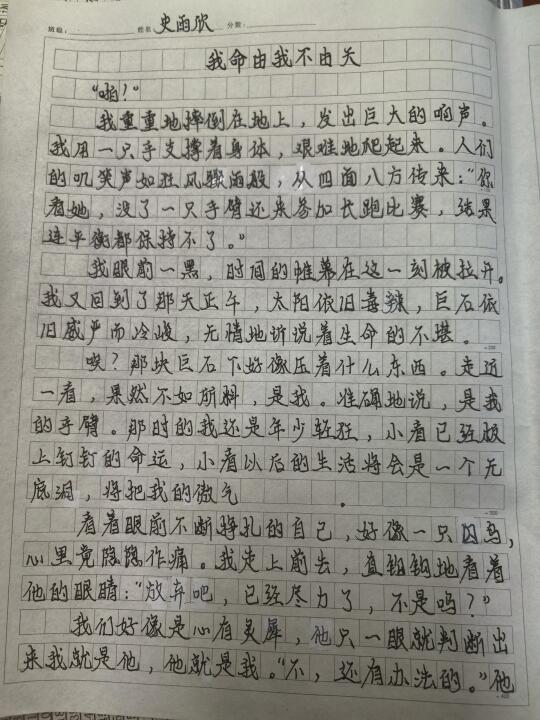 班级: 姓名: 史雨欣 分数:
我命由我不由天
“啪!”
我重重地摔倒在地上,发出巨大的响声。
我用一只手支撑着身体,艰难地爬起来。人们
的讥笑声如狂风骤雨般,从四面八方传来:“你
看她,没了一只手臂还来参加长跑比赛,结果
连平衡都保持不了。”
我眼前一黑,时间的帷幕在这一刻被拉开。
我又回到了那天正午,太阳依旧毒辣,巨石依
旧威严而冷峻,无情地诉说着生命的不堪。
唉?那块巨石下好像压着什么东西。走近
一看,果然不如所料,是我。准确地说,是我
的手臂。那时的我还是年少轻狂,小看已经板
上钉钉的命运,小看以后的生活将会是一个无
底洞,将把我的傲气 .
看着眼前不断挣扎的自己,好像一只囚鸟,
心里竟隐隐作痛。我走上前去,直钩钩地看着
他的眼睛:“放弃吧,已经尽力了,不是吗?”
我们好像是心有灵犀,他只一眼就判断出
来我就是他,他就是我。“不,还有办法的。”他